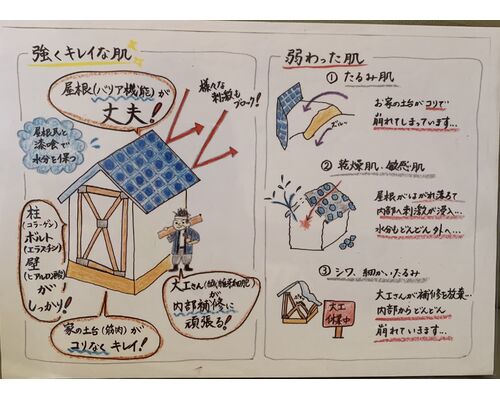 強くキレイな肌
屋根(バリア機能)が
丈夫!
様々な
刺激も
ブロック!
屋根瓦と
漆喰で
水分を保つ
柱
(コラーゲン)
ボルト
(エラスチン)
壁
(ヒアルロン酸)
が
しっかり!
大工さん(線維芽細胞)が
内部補修に
頑張る!
家の土台(筋肉)が
コリなくキレイ!
弱わった肌
① たるみ肌
お家の土台がコリで
崩れてしまっています…
ズルー
② 乾燥肌・敏感肌
屋根がはがれ落ちて
内部へ刺激が侵入…
水分もどんどん外へ…
③ シワ、細かいたるみ
大工さんが補修を放棄…
内部からどんどん
崩れていきます…
大工
休業中